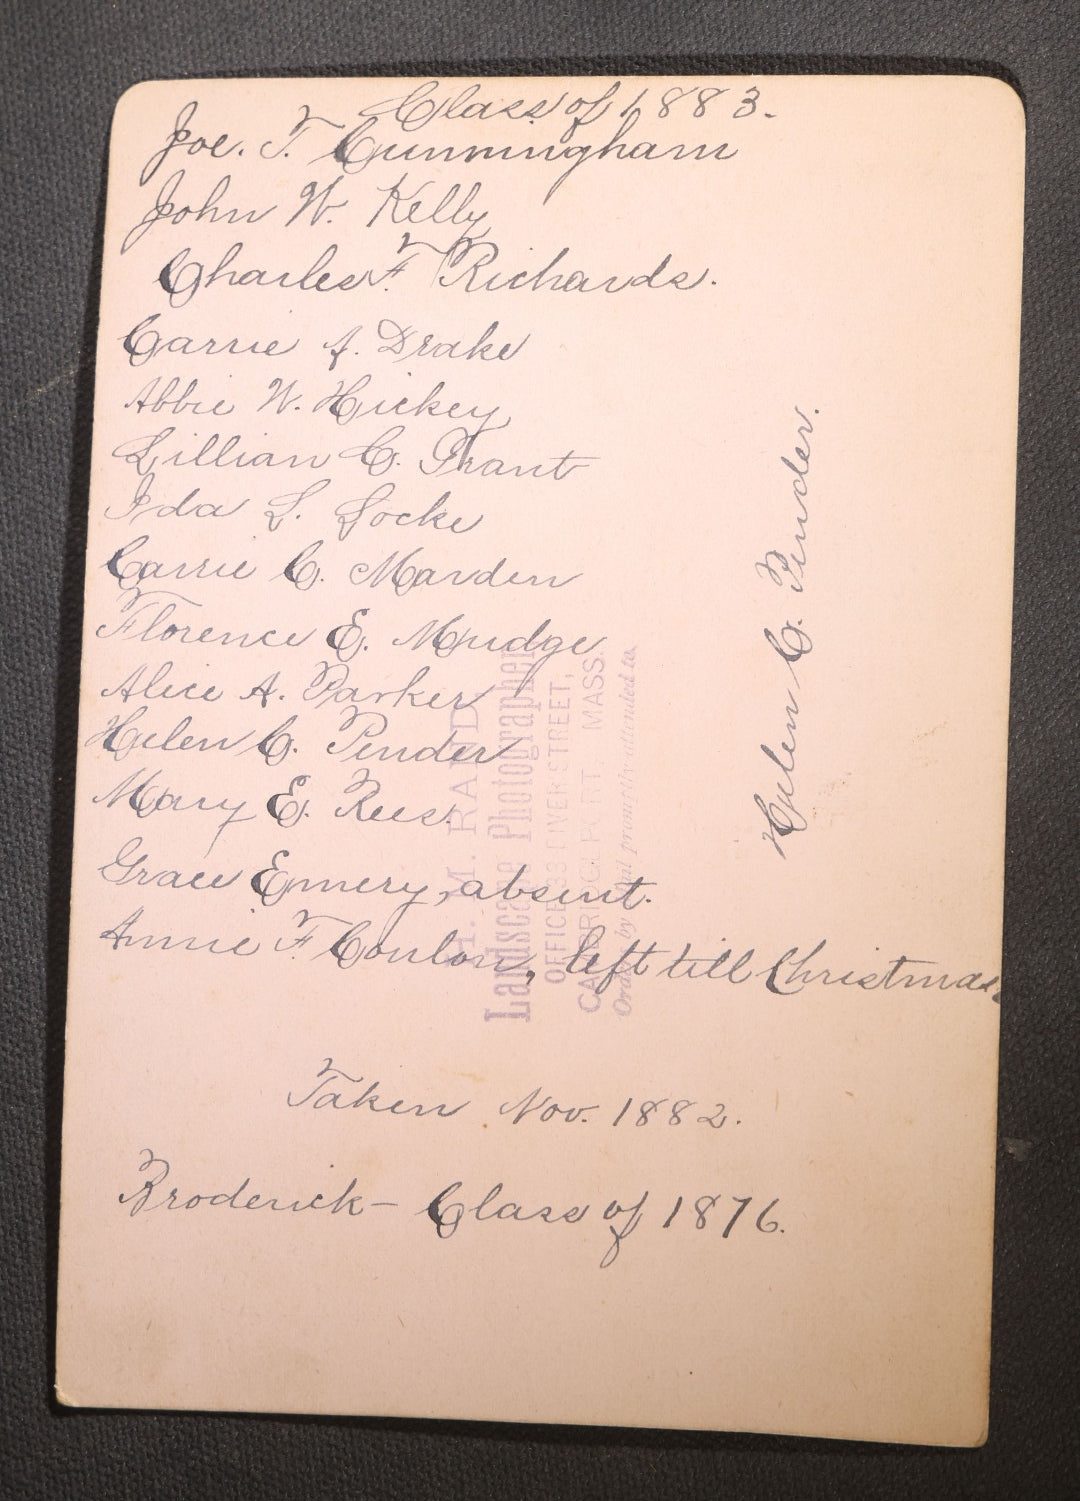 Class of 1883.
Joe. T. Cunningham
John W. Kelly
Charles F. Richards.
Carrie A. Drake
Abbie W. Hickey
Lillian C. Grant
Ida L. Locke
Carrie C. Marden
Florence E. Mudge
Alice A. Parker
Helen C. Pender
Mary E. Rees.
Grace Emery, absent.
Annie F. Conlon, left till Christmas
Taken Nov. 1882.
Broderick - Class of 1876.
Helen C. Pender.
H. M. RAND
Landscape Photographer
OFFICE 33 STREET,
CAMBRIDGEPORT, MASS.
Orders by mail promptly attended to.